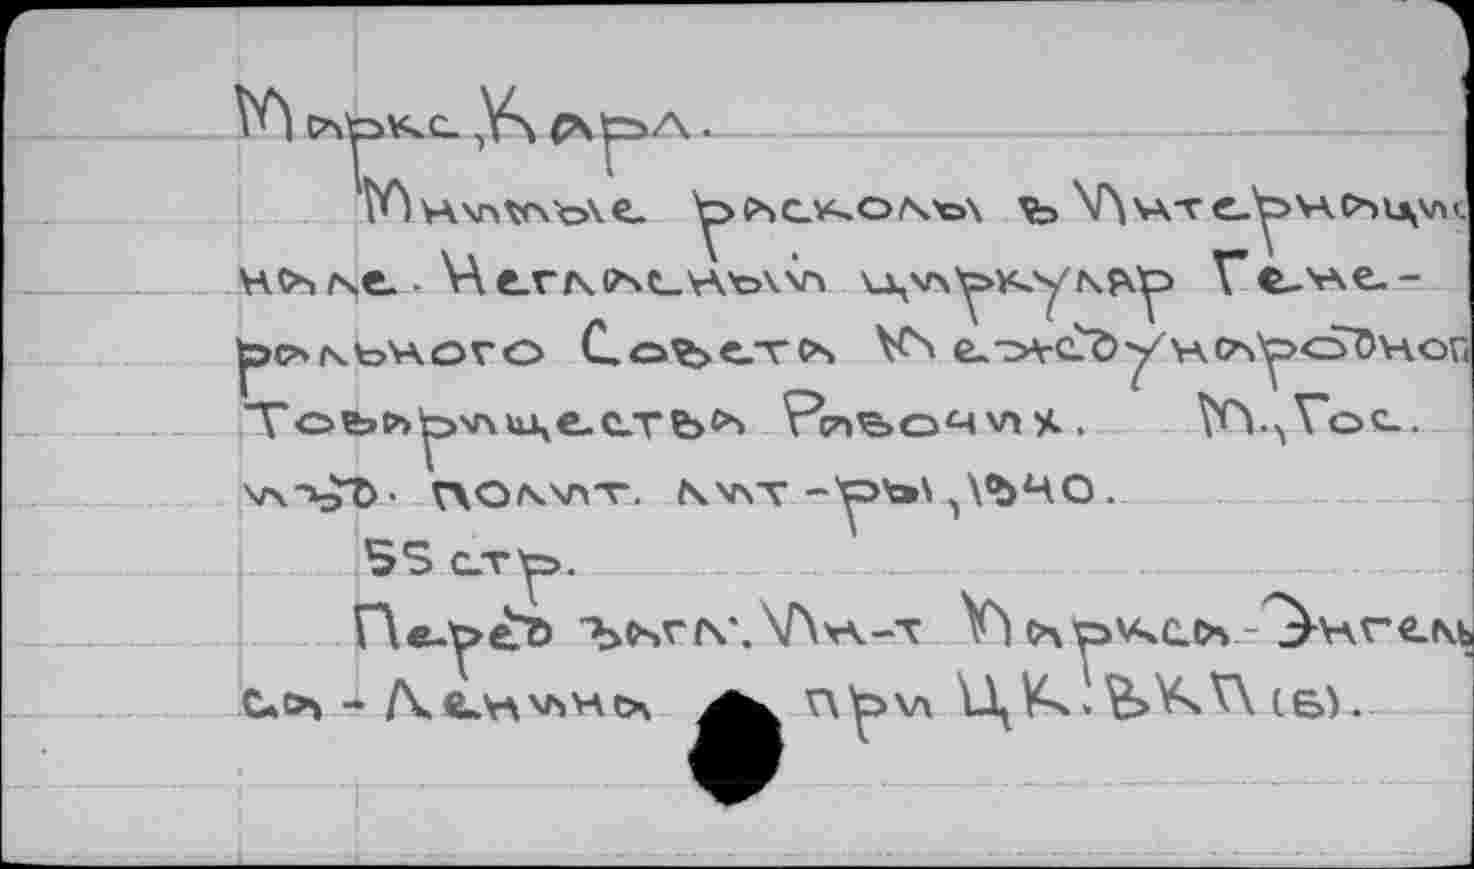 Маркс, Карл.
Мнимые расколы в Интернацио
нале. Негласный циркуляр Гене-
рального Совета Международног
Товарищества Рабочих. М., Гос.
изд. полит. лит-ры, 1940.
55 стр.
Перед загл: Ин-т Маркса-Энгель
са - Ленина при ЦК ВКП(б).